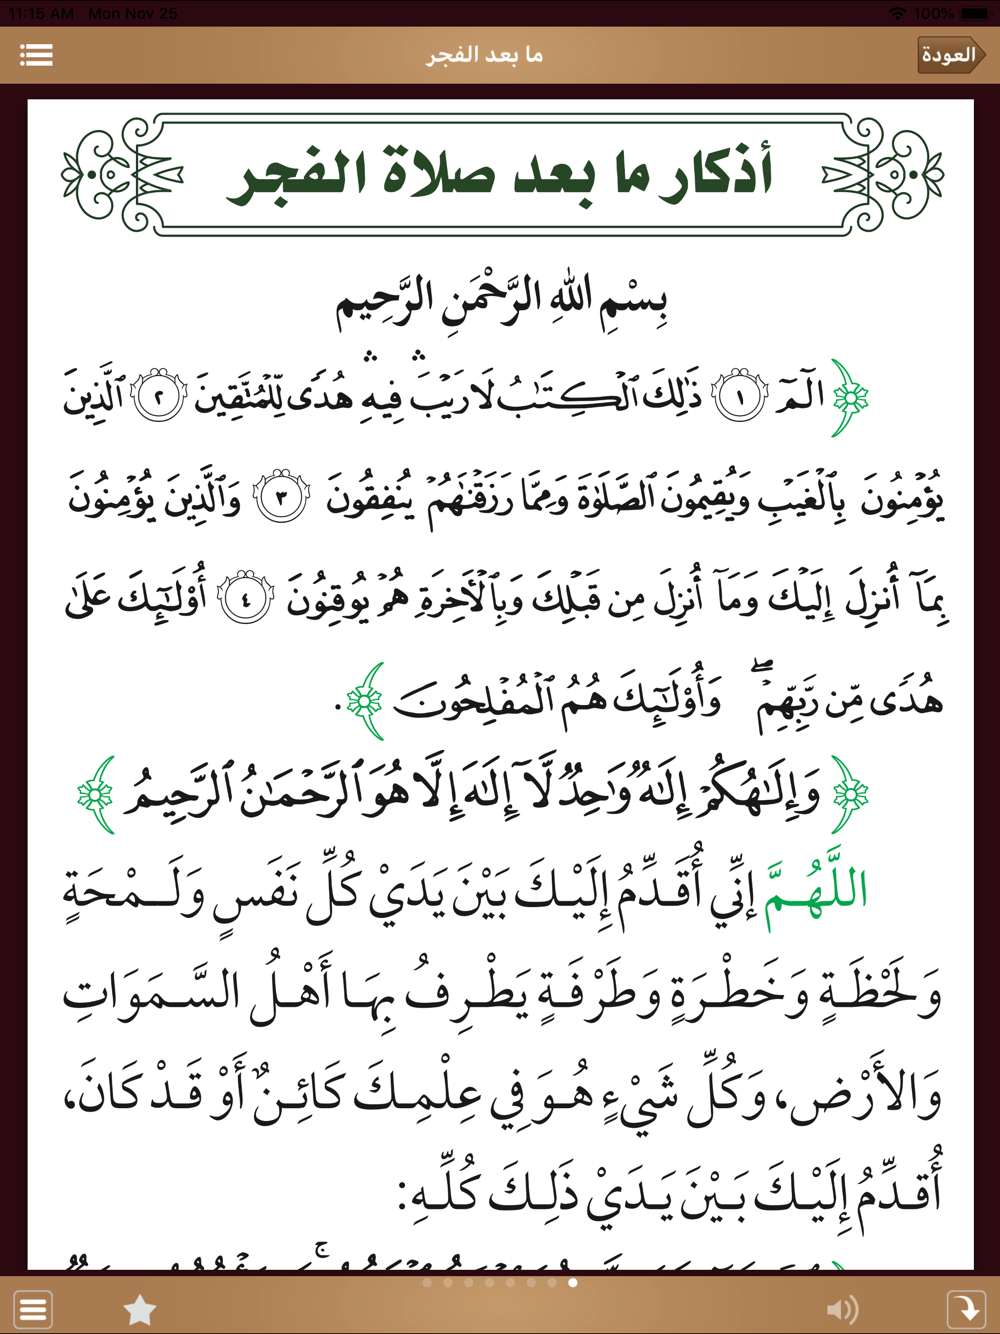 11:15 AM Mon Nov 25 100%
العودة
ما بعد الفجر
أذكار ما بعد صلاة الفجر
بِسْمِ اللَّهِ الرَّحْمَنِ الرَّحِيمِ
﴿الٓمٓ ١ ذَٰلِكَ ٱلْكِتَٰبُ لَا رَيْبَ ۛ فِيهِ ۛ هُدًى لِّلْمُتَّقِينَ ٢ ٱلَّذِينَ
يُؤْمِنُونَ بِٱلْغَيْبِ وَيُقِيمُونَ ٱلصَّلَوٰةَ وَمِمَّا رَزَقْنَٰهُمْ يُنفِقُونَ ٣ وَٱلَّذِينَ يُؤْمِنُونَ
بِمَآ أُنزِلَ إِلَيْكَ وَمَآ أُنزِلَ مِن قَبْلِكَ وَبِٱلْأَخِرَةِ هُمْ يُوقِنُونَ ٤ أُوْلَٰٓئِكَ عَلَىٰ
هُدًى مِّن رَّبِّهِمْ ۖ وَأُوْلَٰٓئِكَ هُمُ ٱلْمُفْلِحُونَ﴾.
﴿وَإِلَٰهُكُمْ إِلَٰهٌ وَٰحِدٌ لَّآ إِلَٰهَ إِلَّا هُوَ ٱلرَّحْمَٰنُ ٱلرَّحِيمُ﴾
اللَّهُمَّ إِنِّي أُقَدِّمُ إِلَيْكَ بَيْنَ يَدَيْ كُلِّ نَفَسٍ وَلَمْحَةٍ
وَلَحْظَةٍ وَخَطْرَةٍ وَطَرْفَةٍ يَطْرِفُ بِهَا أَهْلُ السَّمَوَاتِ
وَالأَرْضِ، وَكُلِّ شَيْءٍ هُوَ فِي عِلْمِكَ كَائِنٌ أَوْ قَدْ كَانَ،
أُقَدِّمُ إِلَيْكَ بَيْنَ يَدَيْ ذَلِكَ كُلِّهِ: